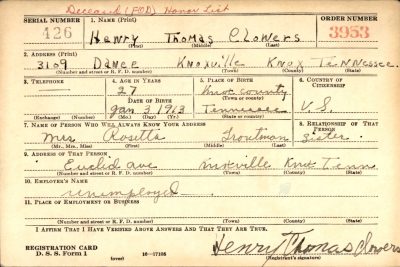 Deceased (FOD) Honor List
SERIAL NUMBER
1. NAME (Print)
ORDER NUMBER
426
Henry Thomas Clowers
3953
(First) (Middle) (Last)
2. ADDRESS (Print)
3109 Dance Knoxville Knox Tennessee
(Number and street or R. F. D. number) (Town) (County) (State)
3. TELEPHONE
4. AGE IN YEARS
5. PLACE OF BIRTH
6. COUNTRY OF CITIZENSHIP
27
Knox county
DATE OF BIRTH
(Town or county)
Jan 3 1913
Tennessee
U.S.
(Exchange) (Number)
(Mo.) (Day) (Yr.)
(State or country)
7. NAME OF PERSON WHO WILL ALWAYS KNOW YOUR ADDRESS
8. RELATIONSHIP OF THAT PERSON
Mrs. Rosetta Troutman Sister
(Mr., Mrs., Miss) (First) (Middle) (Last)
9. ADDRESS OF THAT PERSON
Euclid ave Knoxville Knox Tenn
(Number and street or R. F. D. number) (Town) (County) (State)
10. EMPLOYER'S NAME
unemployed
11. PLACE OF EMPLOYMENT OR BUSINESS
(Number and street or R. F. D. number) (Town) (County) (State)
I AFFIRM THAT I HAVE VERIFIED ABOVE ANSWERS AND THAT THEY ARE TRUE.
REGISTRATION CARD
D. S. S. Form 1
(over)
16—17105
Henry Thomas Clowers
(Registrant's signature)